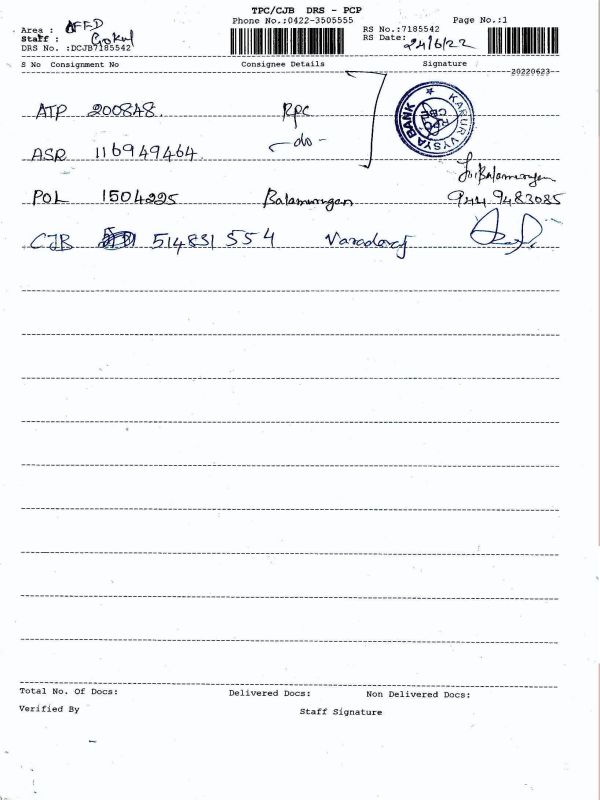 TPC/CJB DRS - PCP
Phone No.:0422-3505555
Page No.:1
Area : OFFD
Staff : Gokul
DRS No. :DCJB7185542
RS No.:7185542
RS Date: 24/6/22
S No Consignment No Consignee Details Signature
20220623
ATP 200848. Rpc
ASR 116949464. -do-
KARUR VYSYA BANK
RPC
CBE
POL 1504225 Balamurugan
944 9483085
CJB 514831554 Varadaraj
Total No. Of Docs: Delivered Docs: Non Delivered Docs:
Verified By Staff Signature